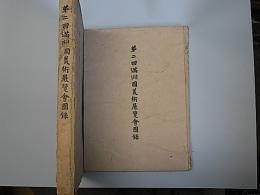 第二回満洲國美術展覧會圖錄
第二回満洲國美術展覧會圖錄